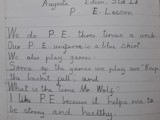 Augusta Edwin Std L1
P. E Lesson
We do P.E. three times a week
Our P.E uniform is a blue shirt
We also play games.
Some of the games we play are "Keep
the basket full" and
"What is the time Mr Wolf".
I like P.E because it helps me to
be strong and healthy.